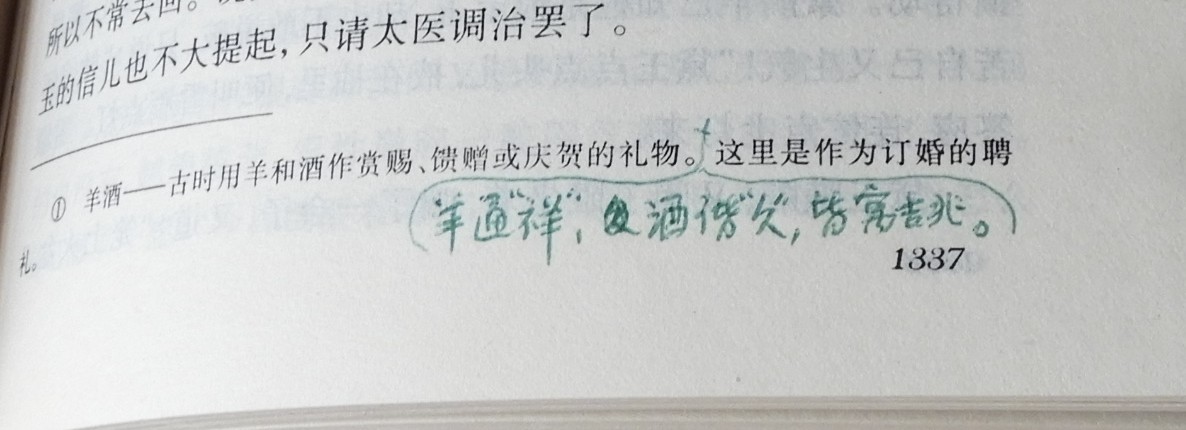 所以不常去回。
玉的信儿也不大提起，只请太医调治罢了。
① 羊酒——古时用羊和酒作赏赐、馈赠或庆贺的礼物。这里是作为订婚的聘
（羊通“祥”，酒谐“久”，皆寓吉兆。）
礼。
1337